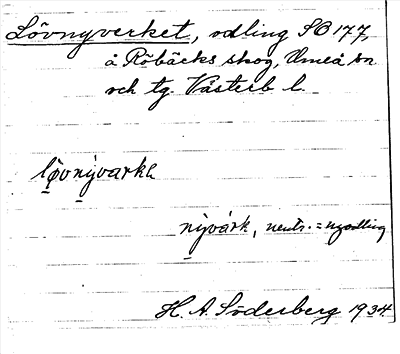 Lövnyverket, odling SO 177,
å Röbäcks skog, Umeå sn
och tg. Västerb l.
lövnỳvarkə
nỳvárk, neutr. = nyodling
H. A. Söderberg 1934